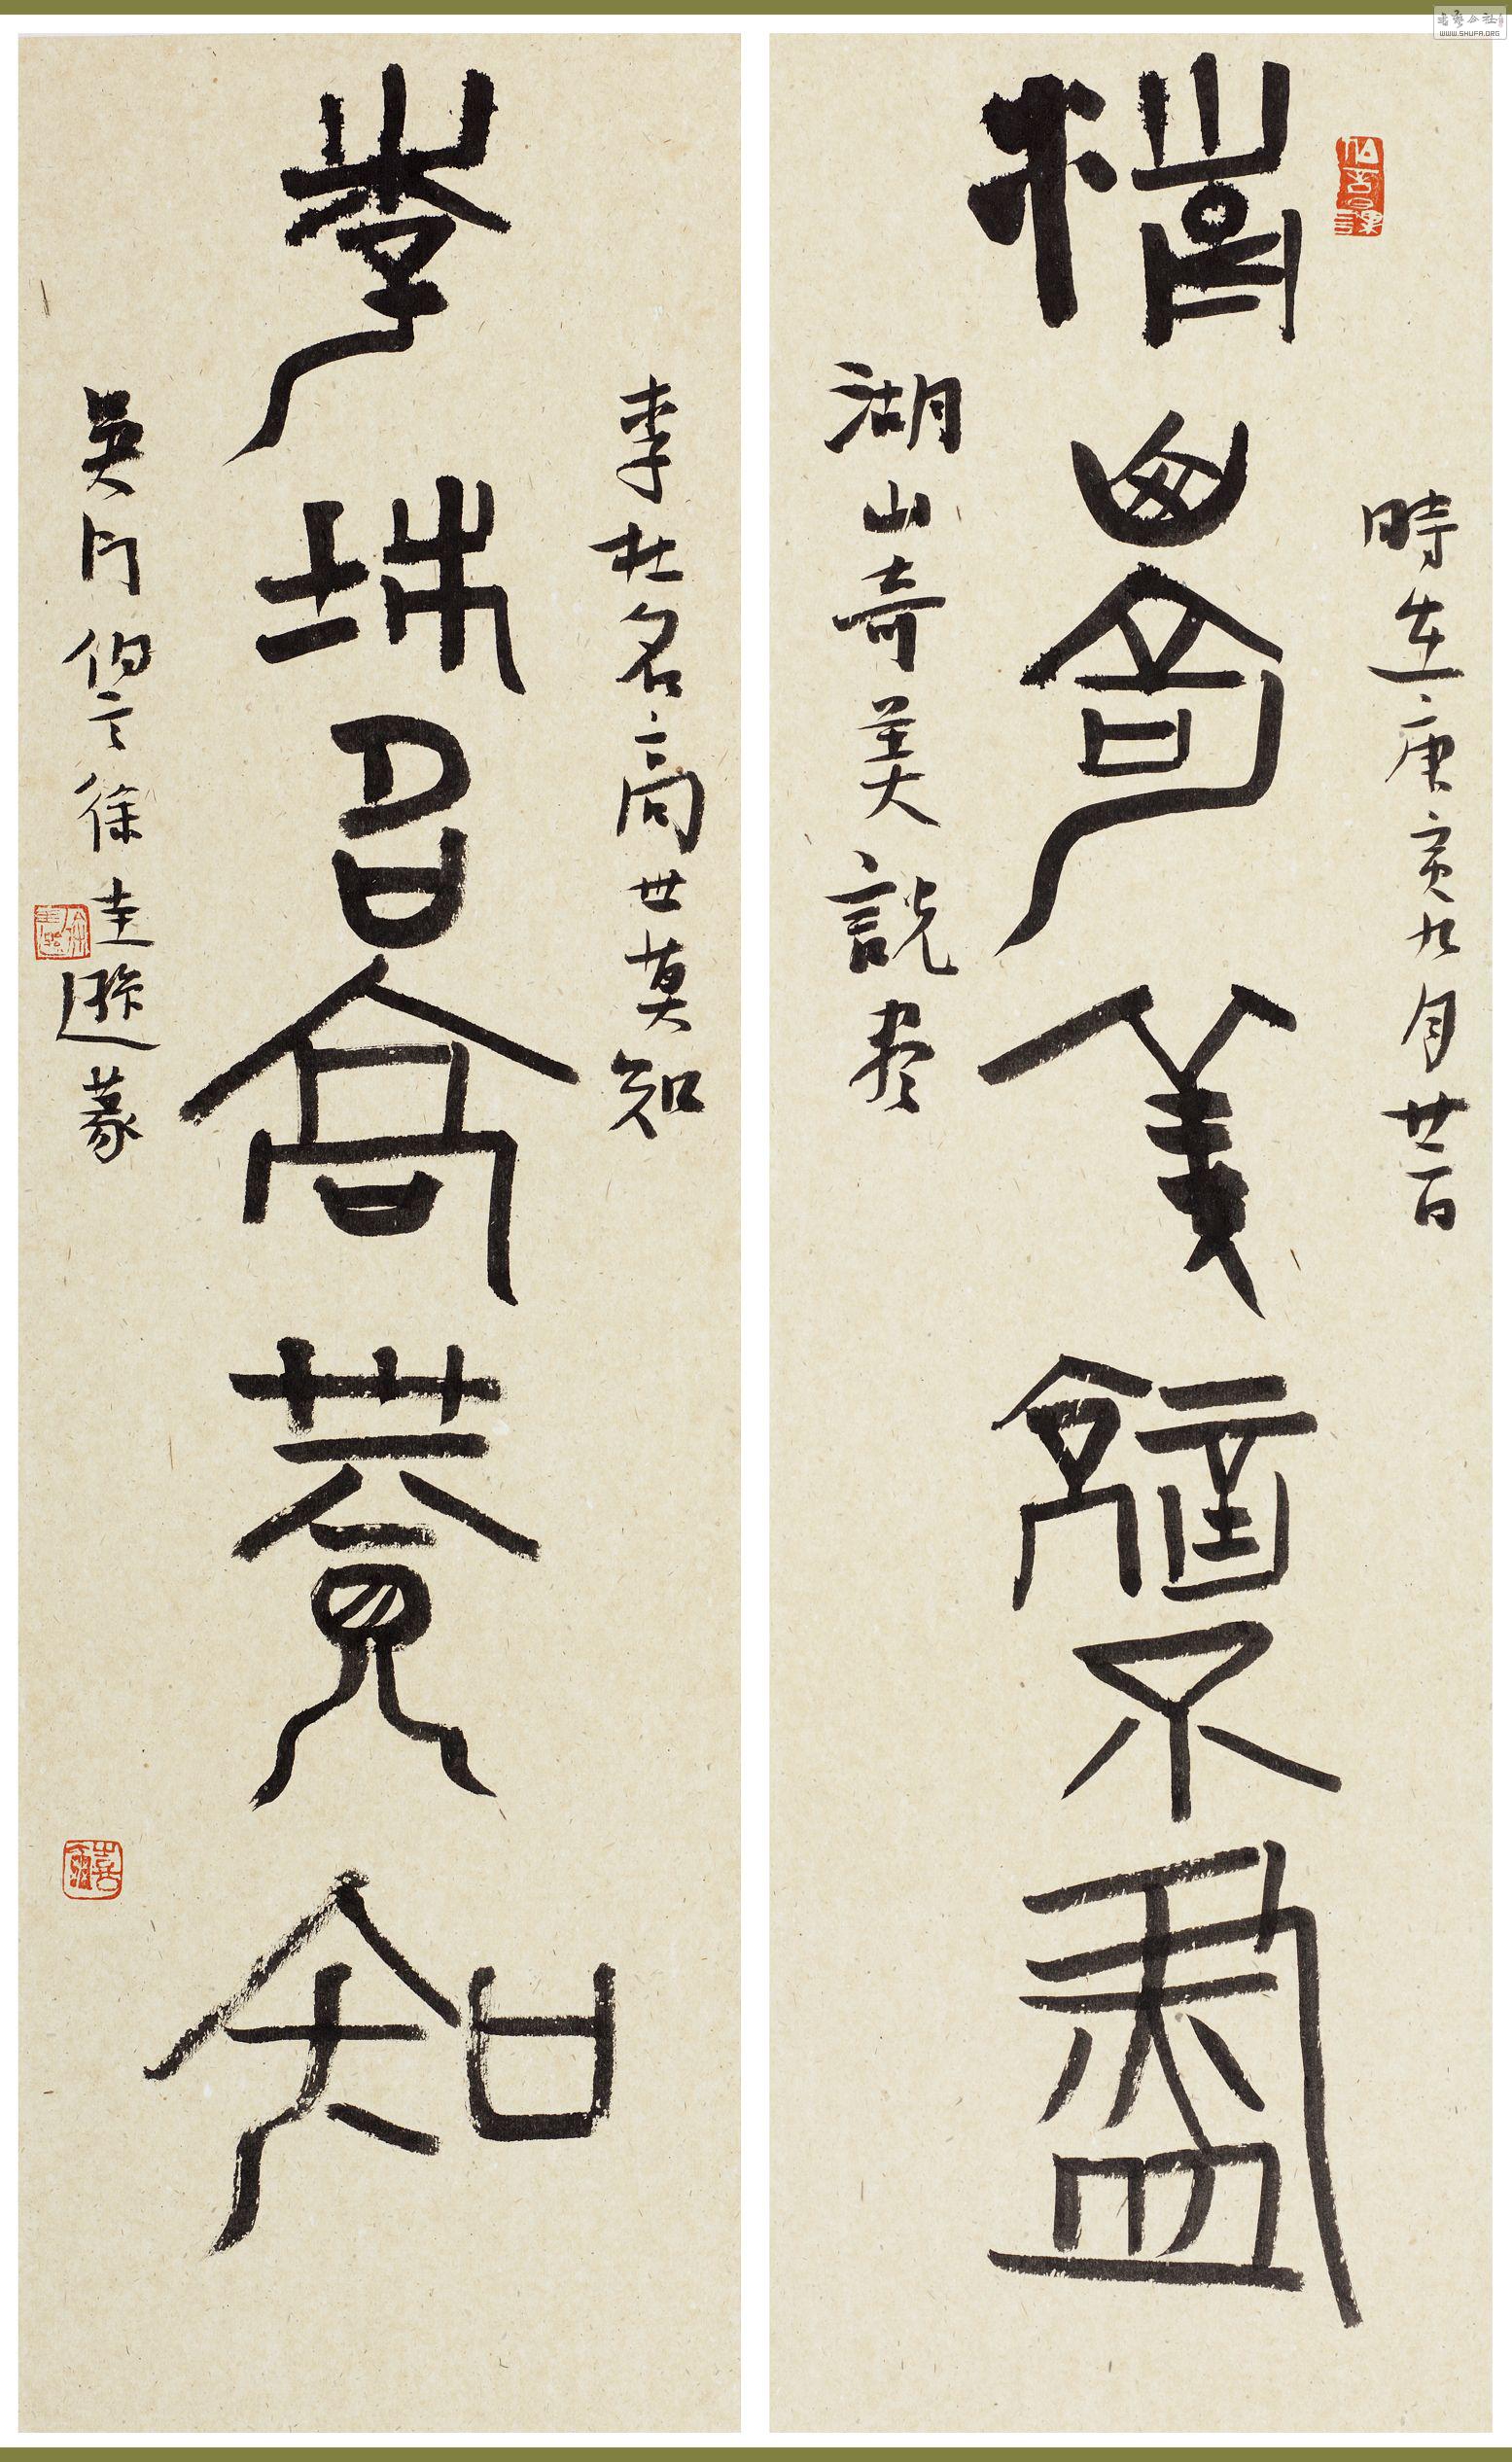 時在庚寅九月廿一日
湖山奇美說不盡
湖山奇美說尽
李杜名高世莫知
李杜名高世莫知
吳門伯言徐圭遜篆
书艺公社
WWW.SHUFA.ORG